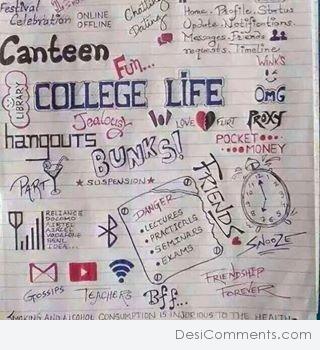 Festival
Celebration
ONLINE
OFFLINE
Chatting
Dating
Home. Profile. Status
Update. Notifications.
Messages. Friends
requests. Timeline
Canteen
Fun...
WINK'S
LIBRARY
COLLEGE LIFE
OMG
Jealousy
LOVE
FLIRT
PROXY
hangouts
BUNKS!
POCKET
MONEY
PARTY
SUSPENSION
FRIENDS
DANGER
• LECTURES
• PRACTICALS
• SEMINARS
• EXAMS
RELIANCE
DOCOMO
AIRTEL
AIRCEL
VODAFONE
BSNL
IDEA...
SNOOZE
GOSSIPS
TEACHERS
Bff...
FRIENDSHIP
FOREVER
SMOKING AND ALCOHOL CONSUMPTION IS INJURIOUS TO THE HEALTH
DesiComments.com